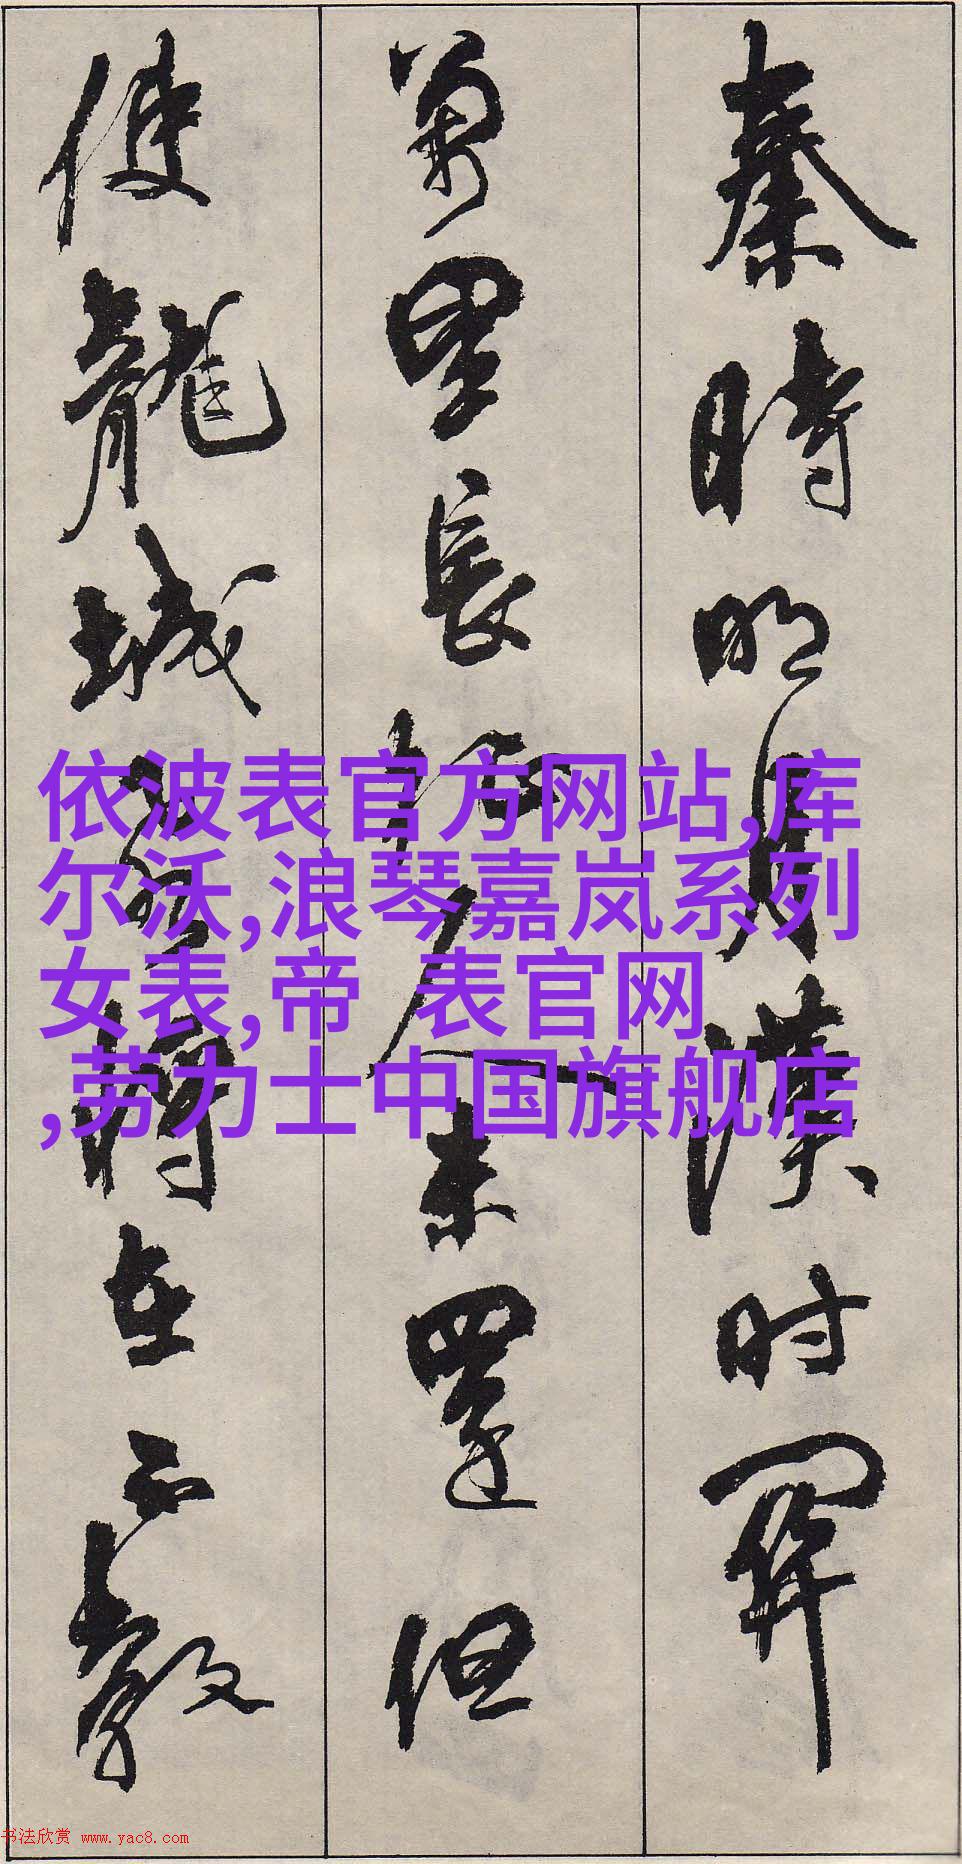 秦時明月漢时關
萬里長征人未還但
使龍城飛將在不教
依波表官方网站,库
尔沃,浪琴嘉岚系列
女表,帝 表官网
,劳力士中国旗舰店
书法欣赏 www.yac8.com